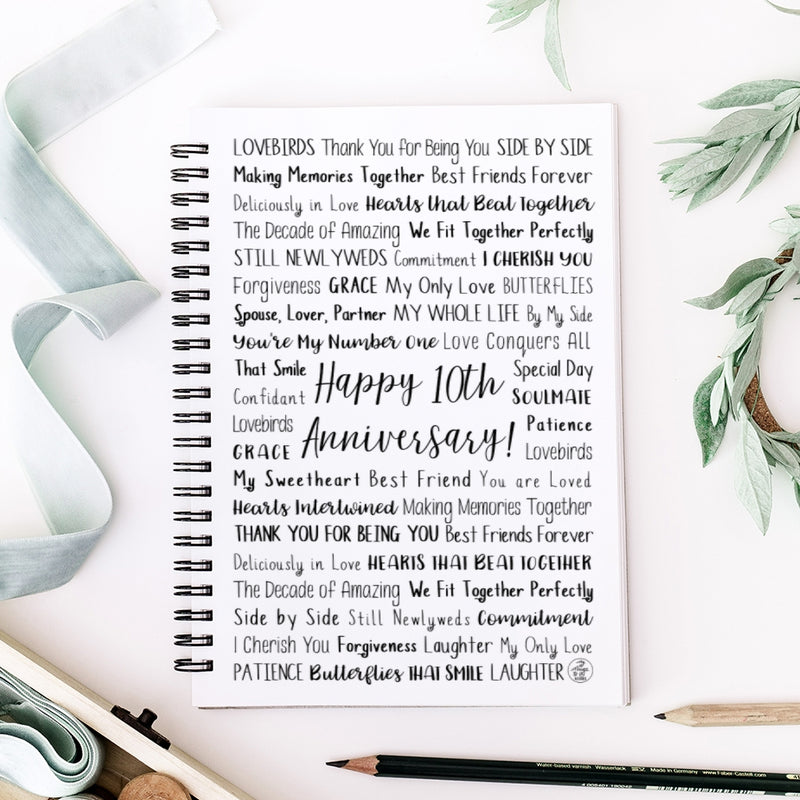 LOVEBIRDS Thank You for Being You SIDE BY SIDE
Making Memories Together Best Friends Forever
Deliciously in Love Hearts that Beat Together
The Decade of Amazing We Fit Together Perfectly
STILL NEWLYWEDS Commitment I CHERISH YOU
Forgiveness GRACE My Only Love BUTTERFLIES
Spouse, Lover, Partner MY WHOLE LIFE By My Side
You're My Number One Love Conquers All
That Smile Special Day
Confidant Happy 10th SOULMATE
Lovebirds Patience
GRACE Anniversary! Lovebirds
My Sweetheart Best Friend You are Loved
Hearts Intertwined Making Memories Together
THANK YOU FOR BEING YOU Best Friends Forever
Deliciously in Love HEARTS THAT BEAT TOGETHER
The Decade of Amazing We Fit Together Perfectly
Side by Side Still Newlyweds Commitment
I Cherish You Forgiveness Laughter My Only Love
PATIENCE Butterflies THAT SMILE LAUGHTER
Water-based varnish Wasserlack Made in Germany www.Faber-Castell.com